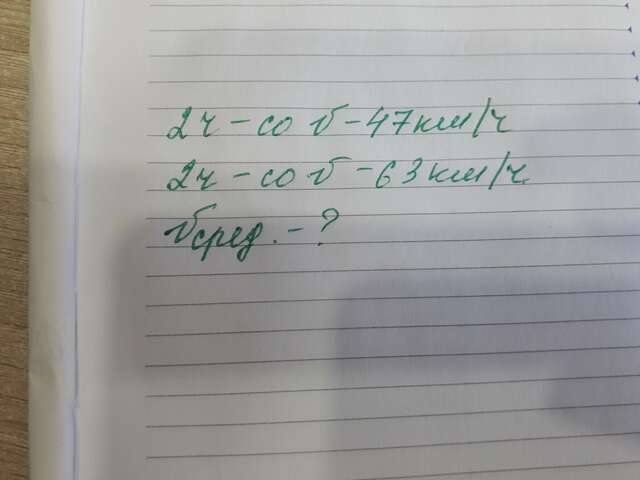 2ч - со v - 47 км/ч
2ч - со v - 63 км/ч.
vсред. - ?